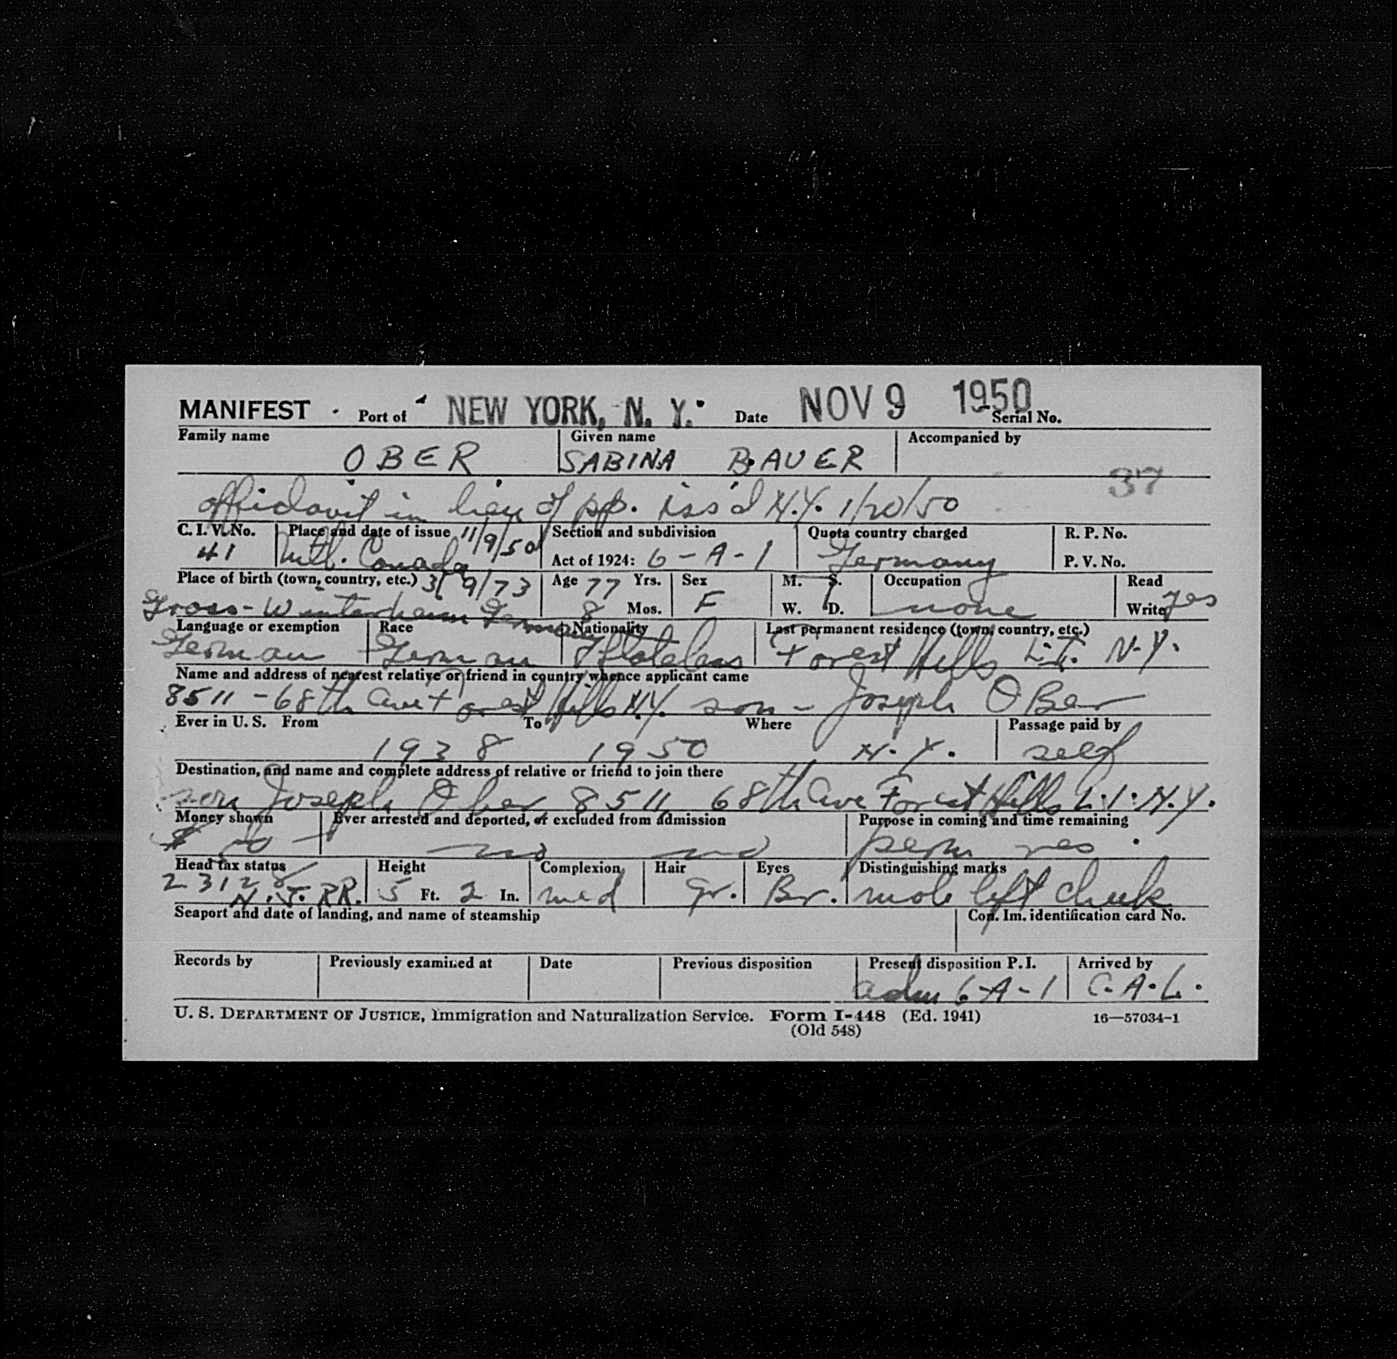 MANIFEST Port of NEW YORK, N. Y. Date NOV 9 1950 Serial No.
Family name Given name Accompanied by
OBER SABINA BAUER
37
affidavit in lieu of pp. iss'd N.Y. 1/20/50
C. I. V. No. Place and date of issue 11/9/50 Section and subdivision Quota country charged R. P. No.
41 Mtl. Canada Act of 1924: 6-A-1 Germany P. V. No.
Place of birth (town, country, etc.) 3/9/73 Age 77 Yrs. Sex M. S. Occupation Read
Gross-Winterheim Germany 8 Mos. F W. D. none Write yes
Language or exemption Race Nationality Last permanent residence (town, country, etc.)
German German Stateless Forest Hills L.I. N.Y.
Name and address of nearest relative or friend in country whence applicant came
8511-68th Ave Forest Hills N.Y. son - Joseph Ober
Ever in U. S. From To Where Passage paid by
1938 1950 N.Y. self
Destination, and name and complete address of relative or friend to join there
son Joseph Ober 8511 68th Ave Forest Hills L.I. N.Y.
Money shown Ever arrested and deported, or excluded from admission Purpose in coming and time remaining
$ no no perm res.
Head tax status Height Complexion Hair Eyes Distinguishing marks
N.J. RR. 5 Ft. 2 In. med gr. Br. mole left cheek
Seaport and date of landing, and name of steamship Can. Im. identification card No.
Records by Previously examined at Date Previous disposition Present disposition P. I. Arrived by
adm 6-A-1 C.A.L.
U. S. DEPARTMENT OF JUSTICE, Immigration and Naturalization Service. Form I-448 (Ed. 1941) 16—57034-1
(Old 548)